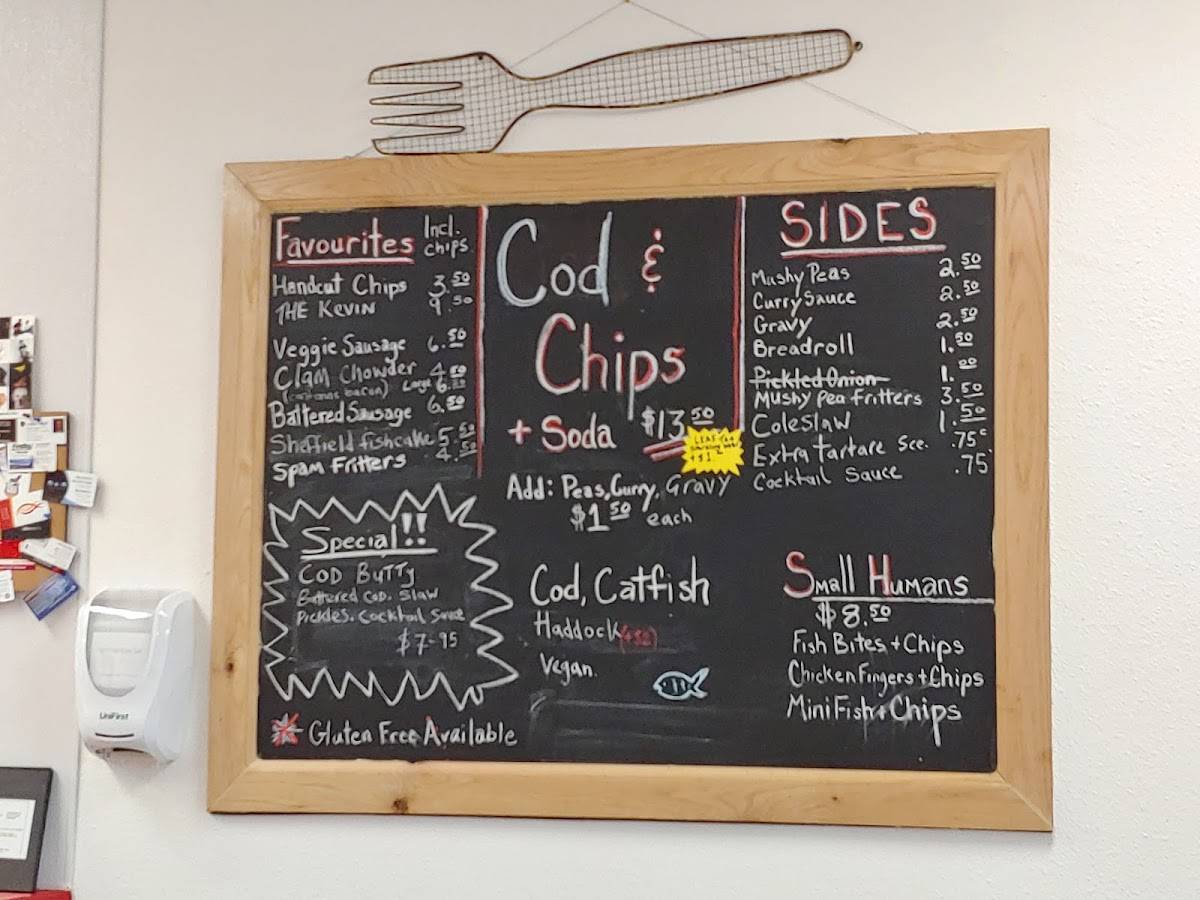 Favourites Incl. chips
Handcut Chips 3.50
THE KEVIN 9.50
Veggie Sausage 6.50
Clam Chowder 4.50
(contains bacon) Large 6.
Battered Sausage 6.50
Sheffield fishcake 5.50
Spam Fritters 4.50
Special!!
COD BUTTY
Battered COD, Slaw
Pickles, Cocktail Sauce
$7.95
Gluten Free Available
Cod &
Chips
+ Soda $13.50
Add: Peas, Curry, Gravy
$1.50 each
Cod, Catfish
Haddock
Vegan.
SIDES
Mushy Peas 2.50
Curry Sauce 2.50
Gravy 2.50
Breadroll 1.50
Pickled Onion 1.00
Mushy Pea Fritters 3.50
Coleslaw 1.50
Extra tartare Sce. .75c
Cocktail Sauce .75
Small Humans
$8.50
Fish Bites + Chips
Chicken Fingers + Chips
Mini Fish + Chips
UniFirst